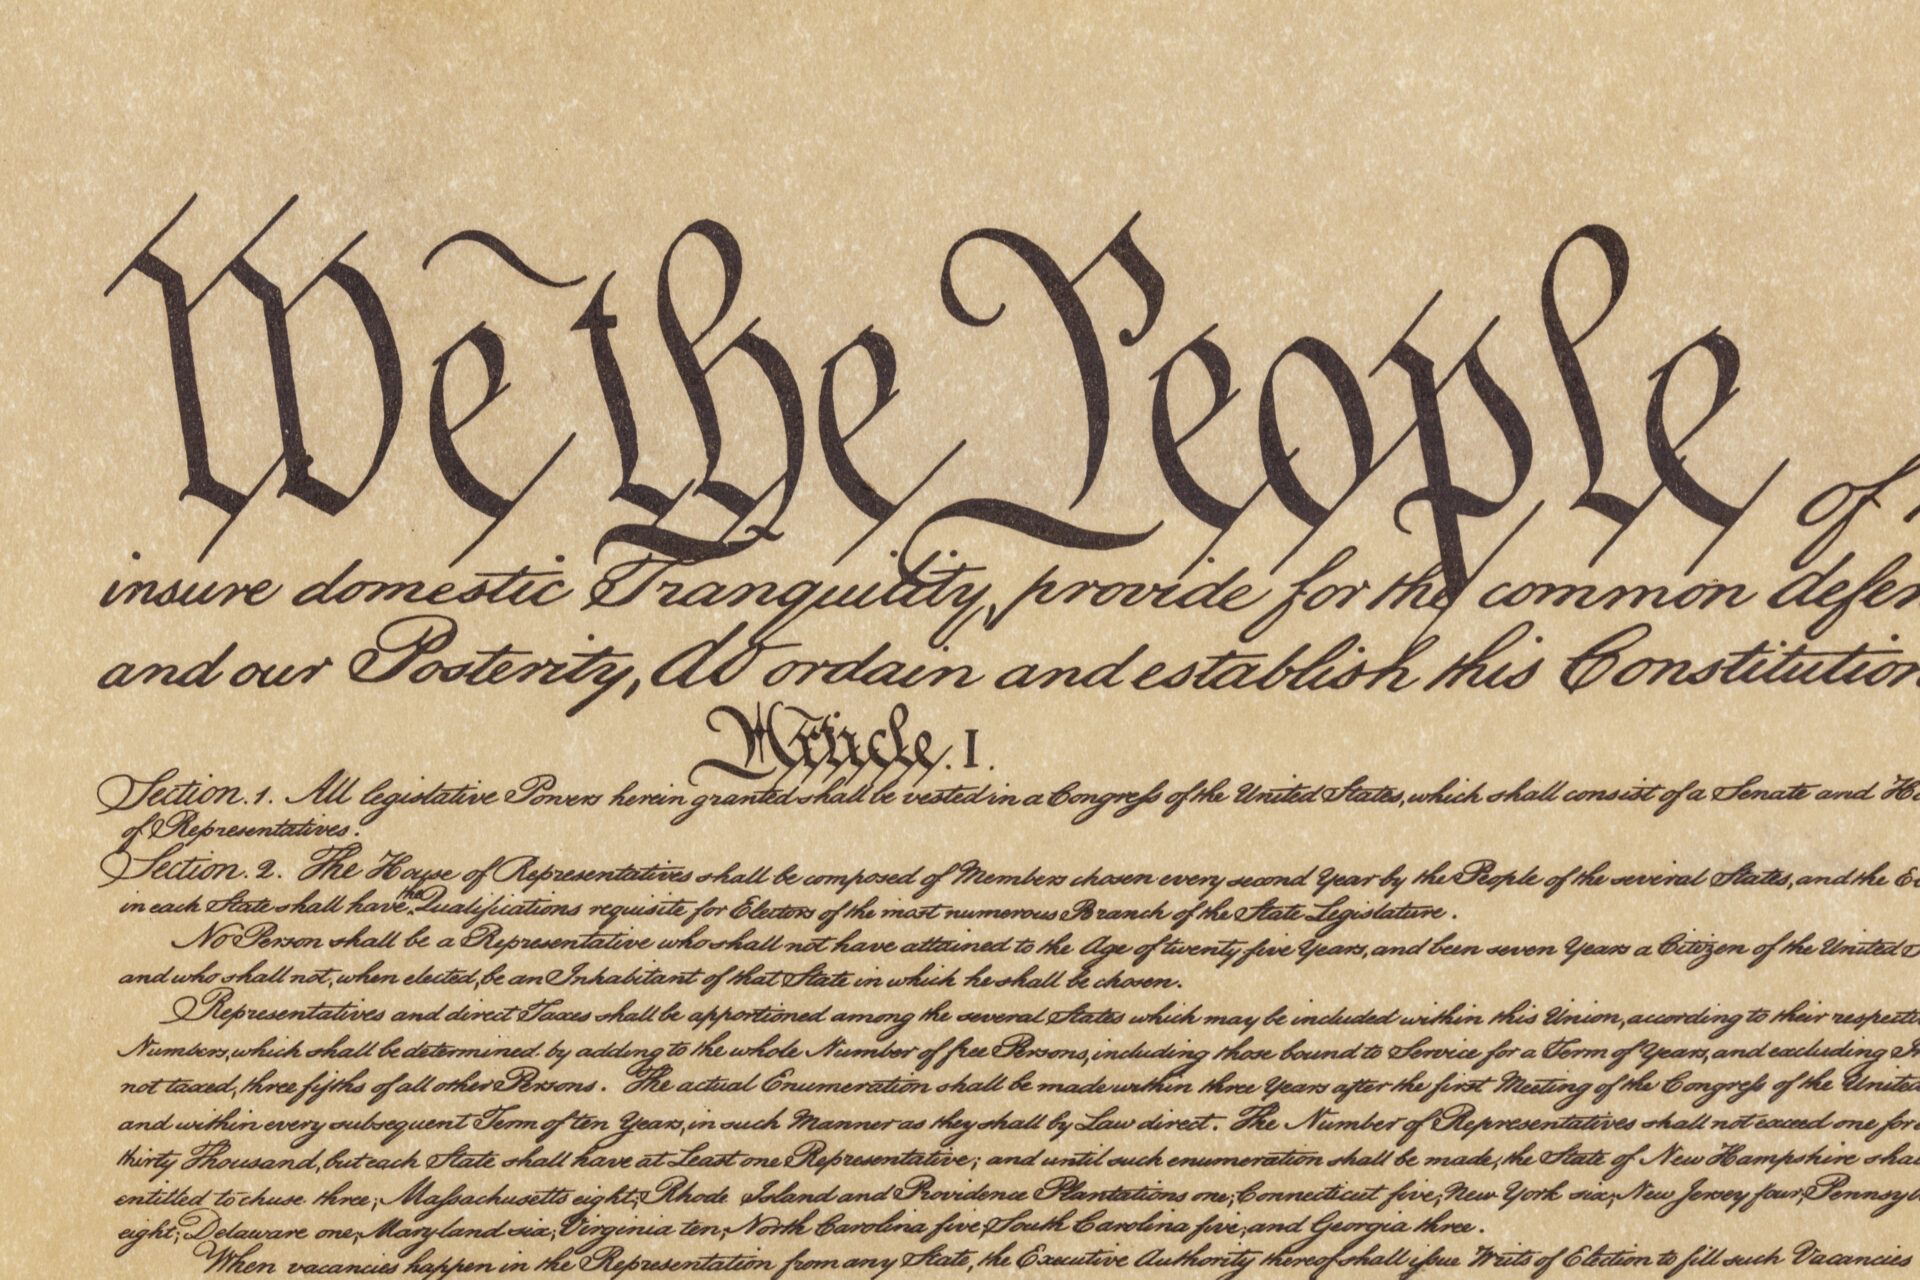 We the People of
insure domestic Tranquility, provide for the common defen
and our Posterity, do ordain and establish this Constitution
Article. I.
Section. 1. All legislative Powers herein granted shall be vested in a Congress of the United States, which shall consist of a Senate and Ho
of Representatives.
Section. 2. The House of Representatives shall be composed of Members chosen every second Year by the People of the several States, and the El
in each State shall have the Qualifications requisite for Electors of the most numerous Branch of the State Legislature.
No Person shall be a Representative who shall not have attained to the Age of twenty five Years, and been seven Years a Citizen of the United S
and who shall not, when elected, be an Inhabitant of that State in which he shall be chosen.
Representatives and direct Taxes shall be apportioned among the several States which may be included within this Union, according to their respecti
Numbers, which shall be determined by adding to the whole Number of free Persons, including those bound to Service for a Term of Years, and excluding In
not taxed, three fifths of all other Persons. The actual Enumeration shall be made within three Years after the first Meeting of the Congress of the United
and within every subsequent Term of ten Years, in such Manner as they shall by Law direct. The Number of Representatives shall not exceed one for
thirty Thousand, but each State shall have at Least one Representative; and until such enumeration shall be made, the State of New Hampshire shal
entitled to chuse three, Massachusetts eight, Rhode Island and Providence Plantations one, Connecticut five, New York six, New Jersey four, Pennsylv
eight, Delaware one, Maryland six, Virginia ten, North Carolina five, South Carolina five, and Georgia three.
When vacancies happen in the Representation from any State, the Executive Authority thereof shall issue Writs of Election to fill such Vacancies